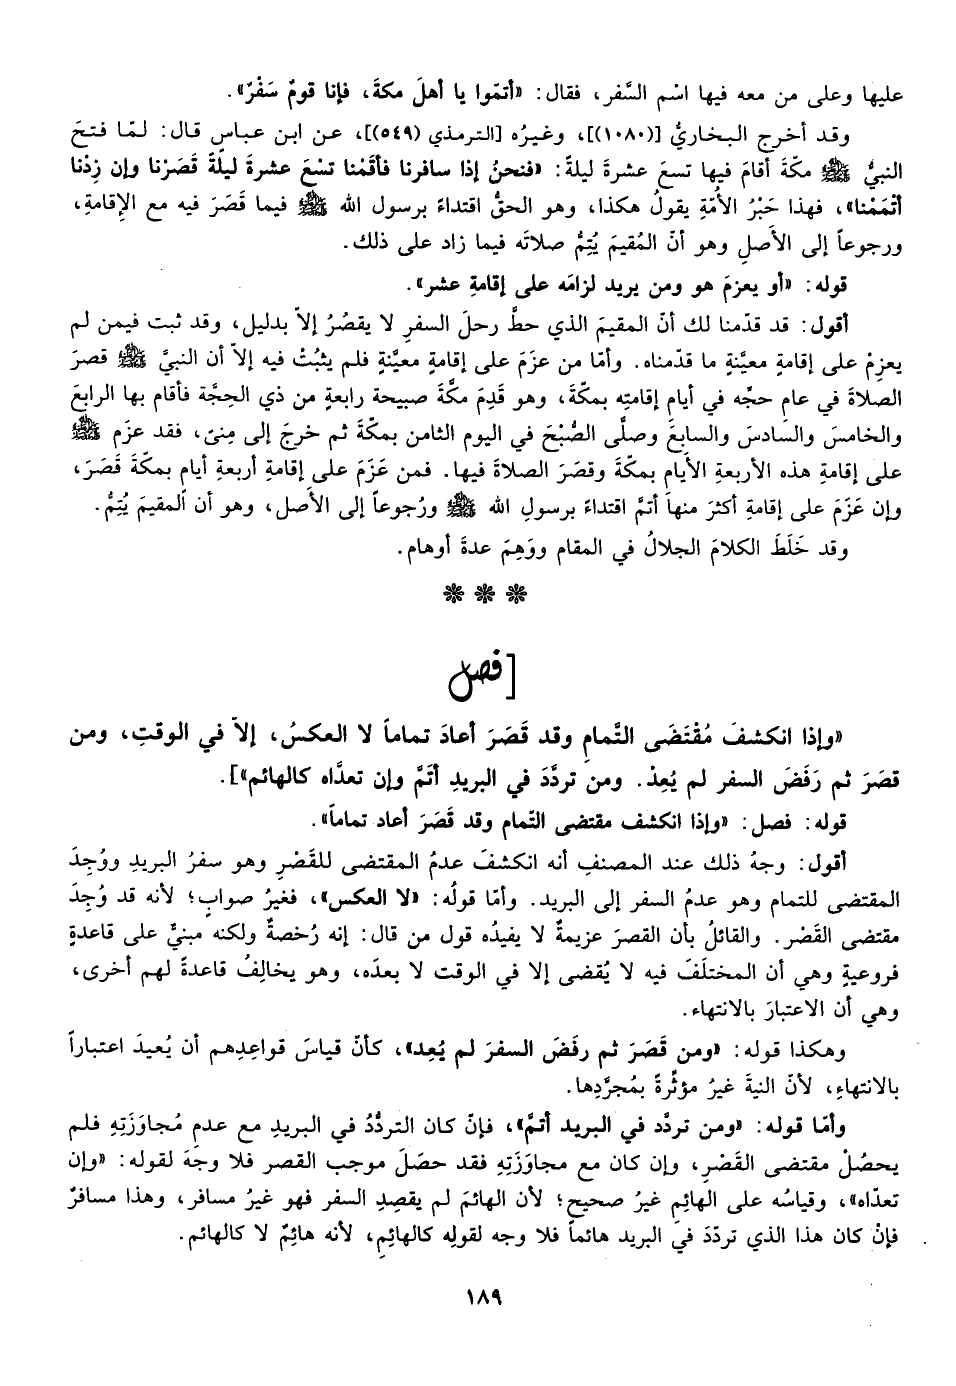 عليها وعلى من معه فيها اسْم السَّفر، فقال: «أتمّوا يا أهلَ مكةَ، فإنا قومٌ سَفْرٌ».
وقد أخرج البخاريُّ [(١٠٨٠)]، وغيرُه [الترمذي (٥٤٩)]، عن ابن عباسٍ قال: لمّا فتحَ
النبيُّ ﷺ مكّةَ أقامَ فيها تسعَ عشرةَ ليلةً: «فنحنُ إذا سافرنا فأقَمْنا تسْعَ عشرةَ ليلةً قَصَرْنا وإن زِدْنا
أتْمَمْنا»، فهذا حَبْرُ الأُمّةِ يقولُ هكذا، وهو الحقُّ اقتداءً برسول الله ﷺ فيما قَصَرَ فيه مع الإقامةِ،
ورجوعاً إلى الأَصلِ وهو أنّ المُقيمَ يُتِمُّ صلاتَه فيما زاد على ذلك.
قوله: «أو يعزمَ هو ومن يريد لزامَه على إقامةِ عشر».
أقول: قد قدّمنا لك أنّ المقيمَ الذي حطَّ رحلَ السفرِ لا يقصُرُ إلاّ بدليل، وقد ثبت فيمن لم
يعزِمْ على إقامةٍ معيَّنةٍ ما قدّمناه. وأمّا من عزَمَ على إقامةٍ معيَّنةٍ فلم يثبُتْ فيه إلاّ أن النبيَّ ﷺ قصرَ
الصلاةَ في عام حجِّه في أيام إقامتِه بمكّةَ، وهو قَدِمَ مكّةَ صبيحة رابعةٍ من ذي الحِجَّة فأقام بها الرابعَ
والخامسَ والسادسَ والسابعَ وصلَّى الصُّبْحَ في اليوم الثامن بمكّةَ ثم خرجَ إلى مِنىً، فقد عزَم ﷺ
على إقامةِ هذه الأربعةِ الأيام بمكّةَ وقصَرَ الصلاةَ فيها. فمن عَزَمَ على إقامةِ أربعةِ أيام بمكّةَ قَصَرَ،
وإن عَزَمَ على إقامةِ أكثرَ منها أتمَّ اقتداءً برسولِ الله ﷺ ورُجوعاً إلى الأصل، وهو أن المقيمَ يُتِمُّ.
وقد خَلَطَ الكلامَ الجلالُ في المقام ووَهِمَ عدةَ أوهام.
❊ ❊ ❊
[فصل
«وإذا انكشفَ مُقْتَضَى التَّمامِ وقد قَصَرَ أعادَ تماماً لا العكسُ، إلاّ في الوقتِ، ومن
قصَرَ ثم رَفَضَ السفر لم يُعِدْ. ومن تردَّدَ في البريدِ أتَمَّ وإن تعدَّاه كالهائم»].
قوله: فصل: «وإذا انكشف مقتضى التّمام وقد قَصَرَ أعاد تماماً».
أقول: وجهُ ذلك عند المصنفِ أنه انكشفَ عدمُ المقتضى للقَصْرِ وهو سفرُ البريدِ ووُجِدَ
المقتضى للتمام وهو عدمُ السفر إلى البريد. وأمّا قولُه: «لا العكس»، فغيرُ صوابٍ؛ لأنه قد وُجِدَ
مقتضى القَصْر. والقائلُ بأن القصرَ عزيمةٌ لا يفيدُه قول من قال: إنه رُخصةٌ ولكنه مبنيٌّ على قاعدةٍ
فروعيةٍ وهي أن المختلَفَ فيه لا يُقضى إلا في الوقت لا بعدَه، وهو يخالِفُ قاعدةً لهم أخرى،
وهي أن الاعتبارَ بالانتهاء.
وهكذا قوله: «ومن قَصَرَ ثم رفَضَ السفرَ لم يُعِد»، كأنّ قياسَ قواعِدِهم أن يُعيدَ اعتباراً
بالانتهاءِ، لأنّ النيةَ غيرُ مؤثِّرةٍ بمُجرَّدِها.
وأمّا قوله: «ومن تردَّد في البريد أتمَّ»، فإنّ كان التردُّدُ في البريدِ مع عدمِ مُجاوَزَتِهِ فلم
يحصُلْ مقتضى القَصْرِ، وإن كان مع مجاوَزَتِهِ فقد حصَلَ موجب القصر فلا وجهَ لقوله: «وإن
تعدّاه»، وقياسُه على الهائِمِ غيرُ صحيح؛ لأن الهائمَ لم يقصِدِ السفر فهو غيرُ مسافر، وهذا مسافرٌ
فإنْ كان هذا الذي تردّدَ في البريد هائماً فلا وجه لقولِه كالهائِمِ، لأنه هائِمٌ لا كالهائم.
١٨٩